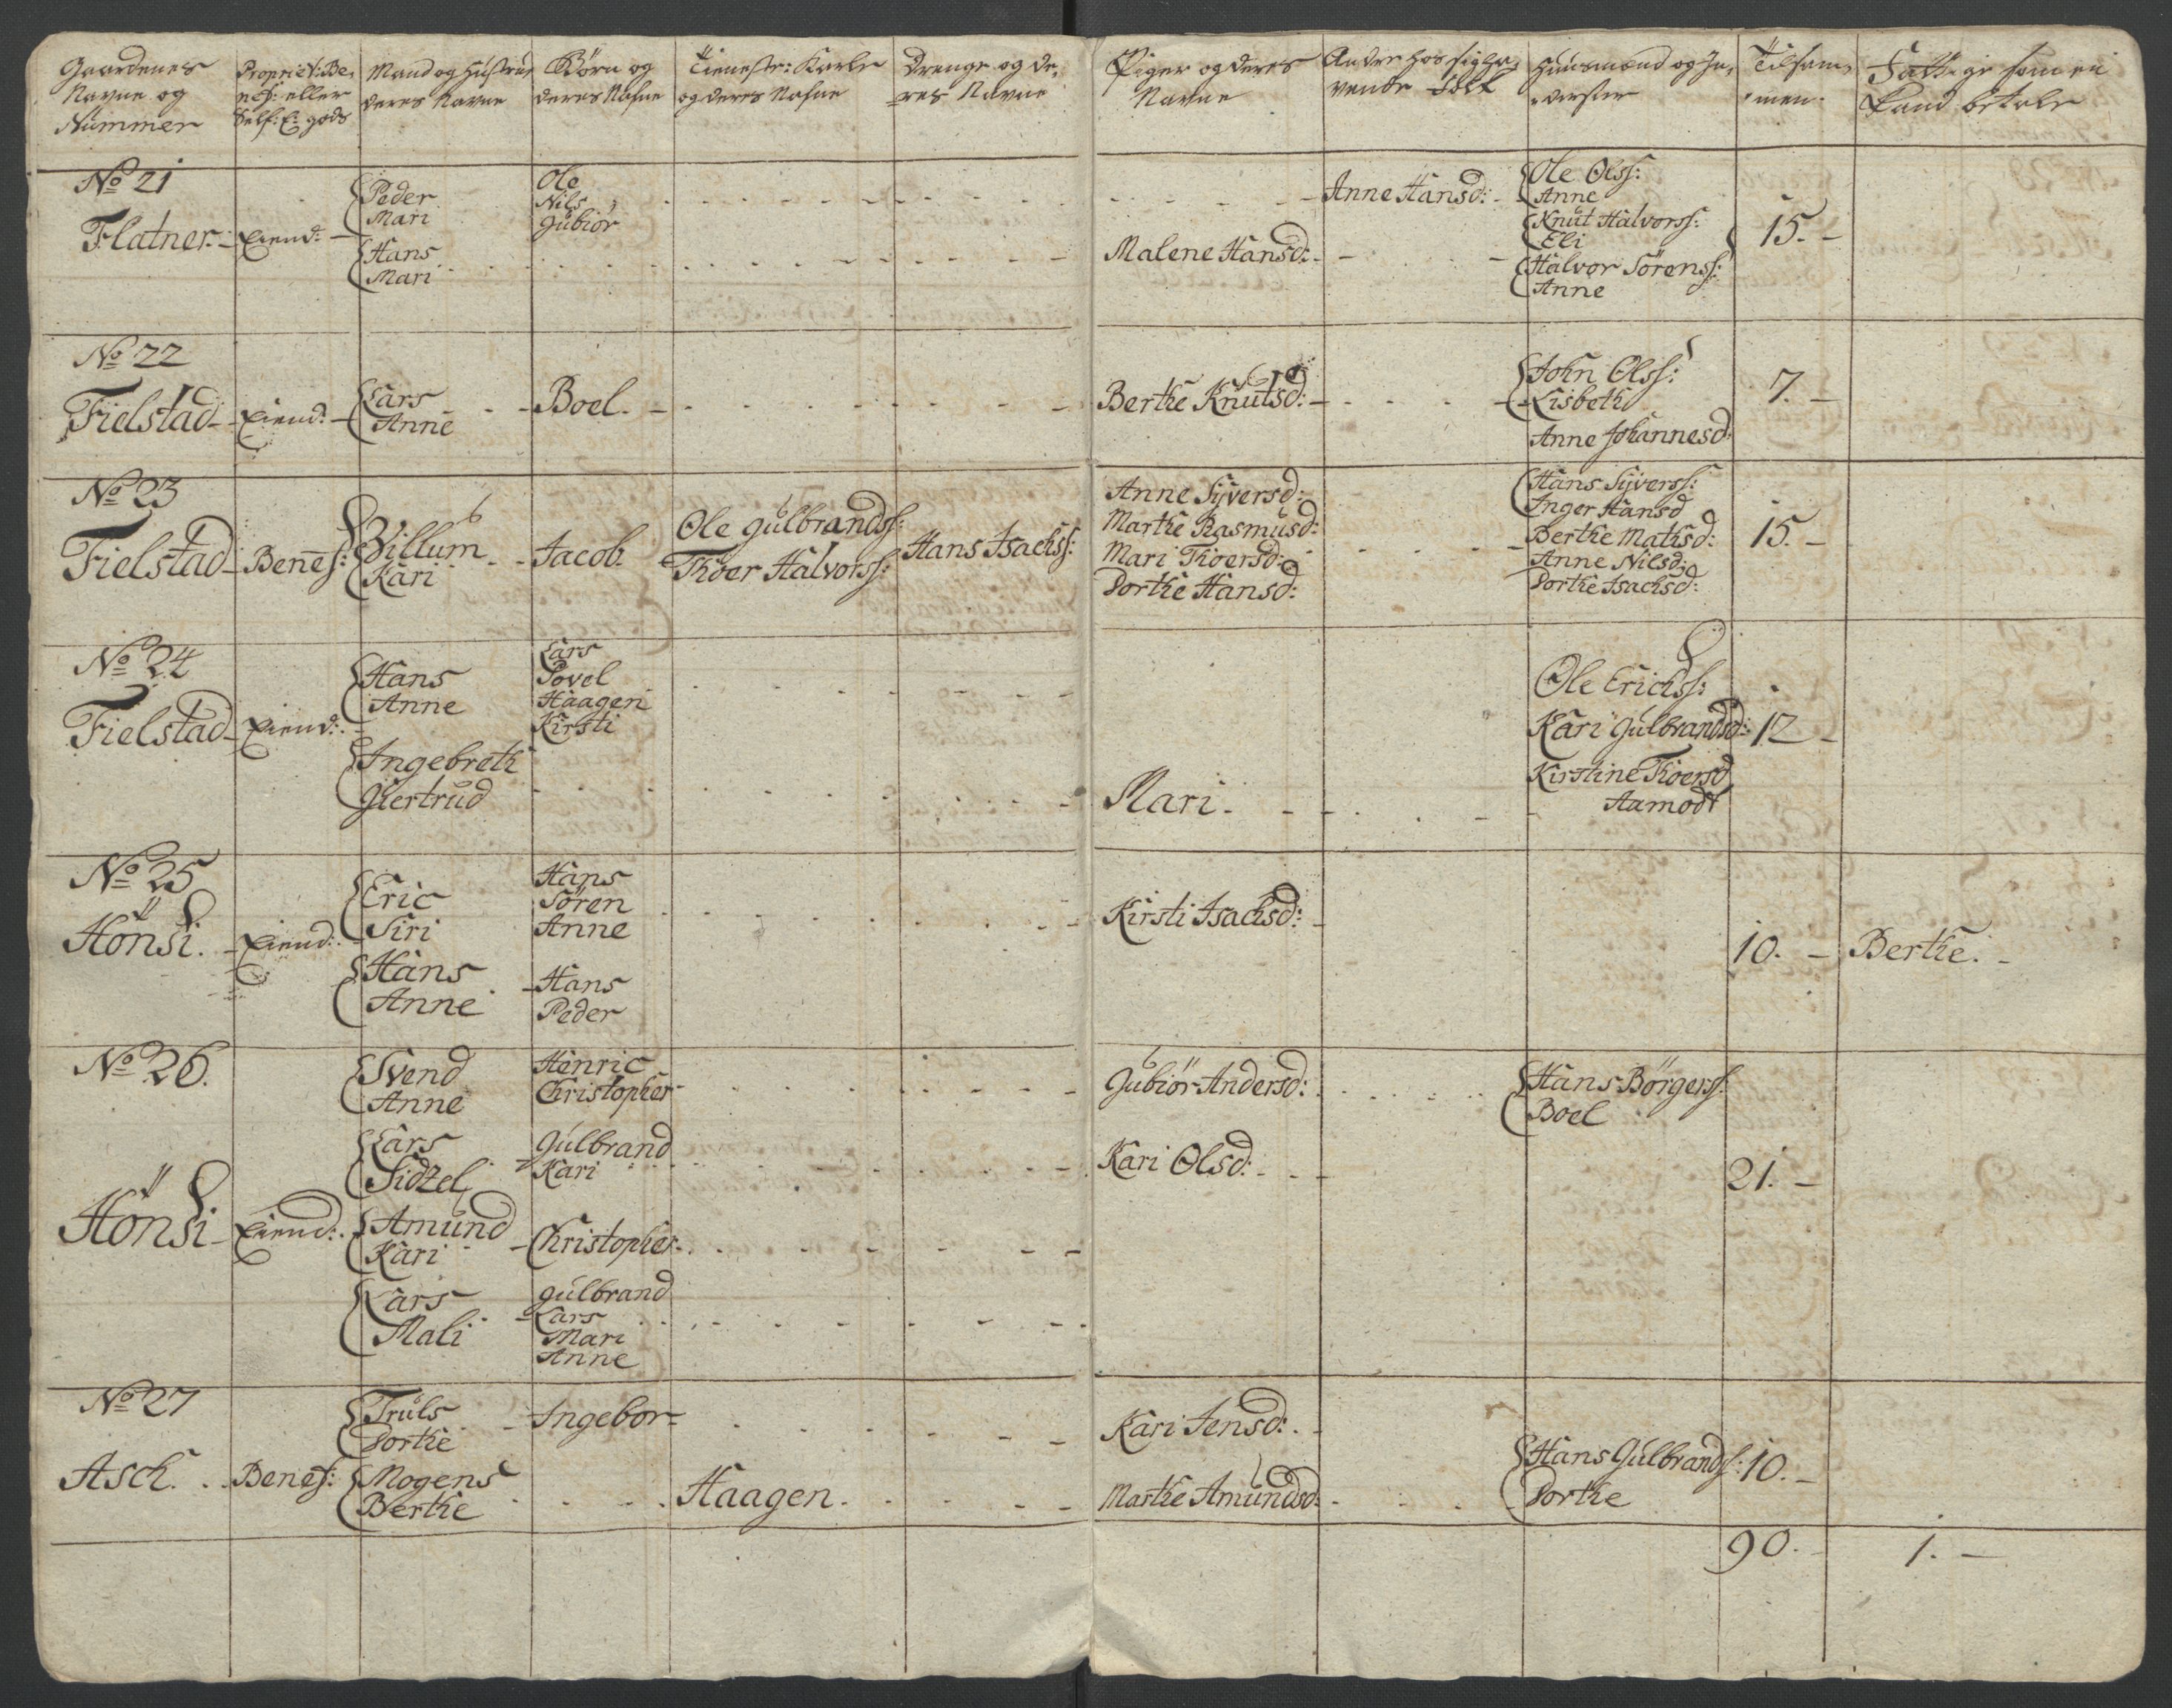 Gaardenes
Navne og
Nummer
Propriet: Be,
nef: eller
Self: E: gods
Mand og Hustrue
deres Navne
Börn og
deres Nafne
Tieneste: Karle
og deres Nafne
Drenge og de,
res Navne
Piger og deres
Navne
Andre hos sig ha,
vende Folk
Huusmænd og In,
derster
Tilsam,
men.
Fattige som ei
kand betale
No 21
Flatner.
Eiend:
Peder
Mari
Hans
Mari
Ole
Nils
Gubiör
Malene Hansd:
Anne Hansd:
Ole Olss:
Anne
Knut Halvorss:
Eli
Halvor Sörenss:
Anne
15.
No 22
Fielstad
Eiend:
Lars
Anne
Boel.
Berthe Knutsd:
John Olss:
Lisbeth
Anne Johannesd:
7.
No 23
Fielstad
Benef:
Villum
Kari
Jacob.
Ole Gulbrandss:
Thoer Halvorss:
Hans Isachss:
Anne Syversd:
Marthe Rasmusd:
Mari Thoersd:
Dorthe Hansd:
Hans Syverss:
Inger Hansd
Berthe Mathsd:
Anne Nilsd:
Dorthe Isachsd:
15.
No 24
Fielstad
Eiend:
Hans
Anne
Ingebreth
Giertrud
Lars
Povel
Haagen
Kirsti
Mari.
Ole Erichss:
Kari Gulbrandsd:
Kirstine Thoersd
Aamodt
12
No 25
Hönsi.
Eiend:
Eric
Siri
Hans
Anne
Hans
Sören
Anne
Hans
Peder
Kirsti Isachsd:
10.
Berthe.
No 26.
Hönsi
Eiend:
Svend
Anne
Lars
Sidzel
Amund
Kari
Lars
Mali
Henric
Christopher
Gulbrand
Kari
Christopher
Gulbrand
Lars
Mari
Anne
Gubiör Andersd:
Kari Olsd:
Hans Börgerss:
Boel
21.
No 27
Asch.
Benef:
Truls
Dorthe
Mogens
Berthe
Ingebor
Haagen.
Kari Jensd:
Marthe Amundsd:
Hans Gulbrandss:
Dorthe
10.
90.
1.